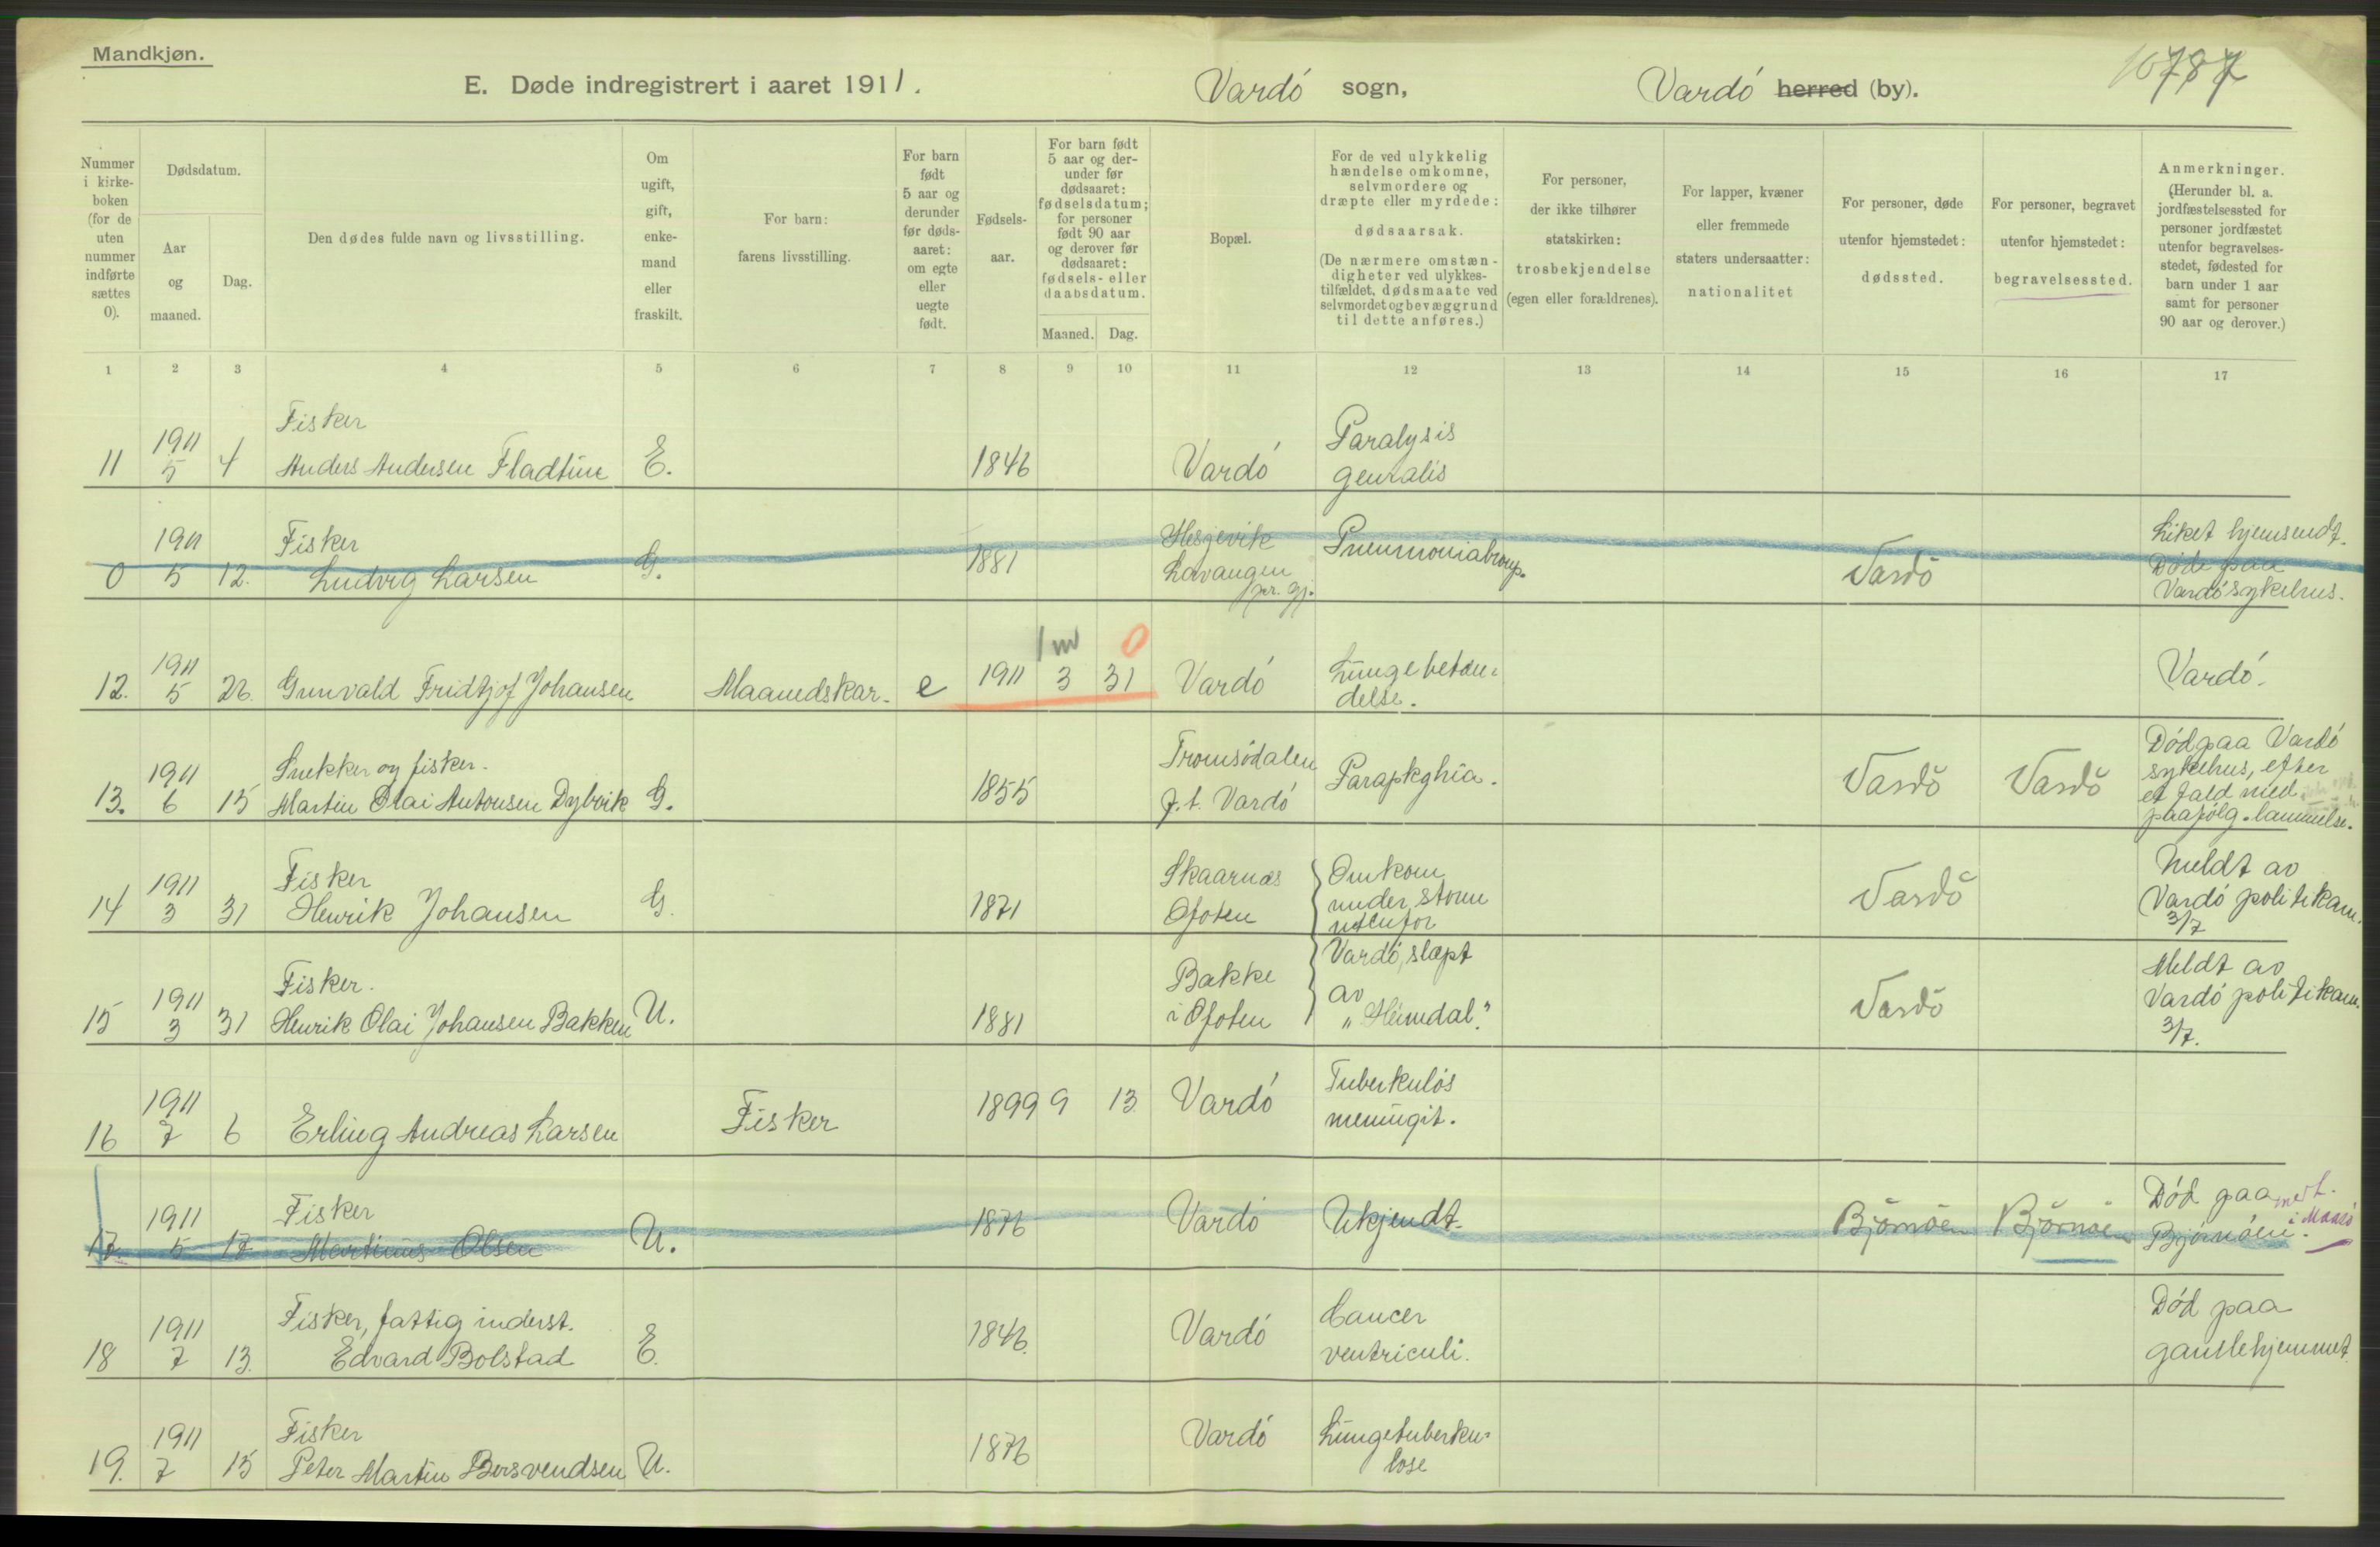 Mandkjøn.
E. Døde indregistrert i aaret 1911. Vardó sogn, Vardó herred (by).
10787
Nummer i kirke- boken (for de uten nummer indførte sættes 0).
Dødsdatum.
Aar og maaned.
Dag.
Den dødes fulde navn og livsstilling.
Om ugift, gift, enke- mand eller fraskilt.
For barn: farens livsstilling.
For barn født 5 aar og derunder før døds- aaret: om egte eller uegte født.
Fødsels- aar.
For barn født 5 aar og der- under før dødsaaret: fødselsdatum; for personer født 90 aar og derover før dødsaaret: fødsels- eller daabsdatum.
Maaned. Dag.
Bopæl.
For de ved ulykkelig hændelse omkomne, selvmordere og dræpte eller myrdede: dødsaarsak. (De nærmere omstæn- digheter ved ulykkes- tilfældet, dødsmaate ved selvmordet og bevæggrund til dette anføres.)
For personer, der ikke tilhører statskirken: trosbekjendelse (egen eller forældrenes).
For lapper, kvæner eller fremmede staters undersaatter: nationalitet
For personer, døde utenfor hjemstedet: dødssted.
For personer, begravet utenfor hjemstedet: begravelsessted.
Anmerkninger. (Herunder bl. a. jordfæstelsessted for personer jordfæstet utenfor begravelses- stedet, fødested for barn under 1 aar samt for personer 90 aar og derover.)
1 2 3 4 5 6 7 8 9 10 11 12 13 14 15 16 17
11 1911 5 4 Fisker
Anders Andersen Fladtine E. 1846 Vardó Paralysis
generalis
0 1911 5 12. Fisker
Ludvig Larsen G. 1881 Hesjevik
Lavangen
pr. Gj. Pneumonia croup. Vardø Liket hjemsendt.
Døde paa
Vardó sykehus.
12. 1911 5 26. Gunvald Fridtjof Johansen Maanedskar. e 1911 3 31 Vardó Lungebetæn-
delse. Vardó.
1 m 0
13. 1911 6 15 Snekker og fisker.
Martin Olai Antonsen Dybvik G. 1855 Tromsödalen
f. t. Vardó Parapleghia. Vardö Vardö Död paa Vardó
sykehus, efter
et fald med
paafölg. lammelse.
14 1911 3 31 Fisker
Henrik Johansen G. 1871 Skaarnæs
Ofoten Omkom
under storm
utenfor Vardö Meldt av
Vardó politikam.
3/7
15 1911 3 31 Fisker.
Henrik Olai Johansen Bakken U. 1881 Bakke
i Ofoten Vardó, slæpt
av
"Heimdal". Vardö Meldt av
Vardó politikam.
3/7.
16 1911 7 6 Erling Andreas Larsen Fisker 1899 9 13 Vardó Tuberkulös
meningit.
17. 1911 5 17 Fisker
Martinus Olsen U. 1876 Vardó Ukjendt. Björnöen Björnöen Död paa
Björnöen.
i Maasö
18 1911 7 13. Fisker, fattig inderst.
Edvard Bolstad E. 1846. Vardó Cancer
ventriculi. Död paa
gamlehjemmet.
19. 1911 7 15 Fisker
Peter Martin Bersvendsen U. 1876 Vardó Lungetuberku-
lose